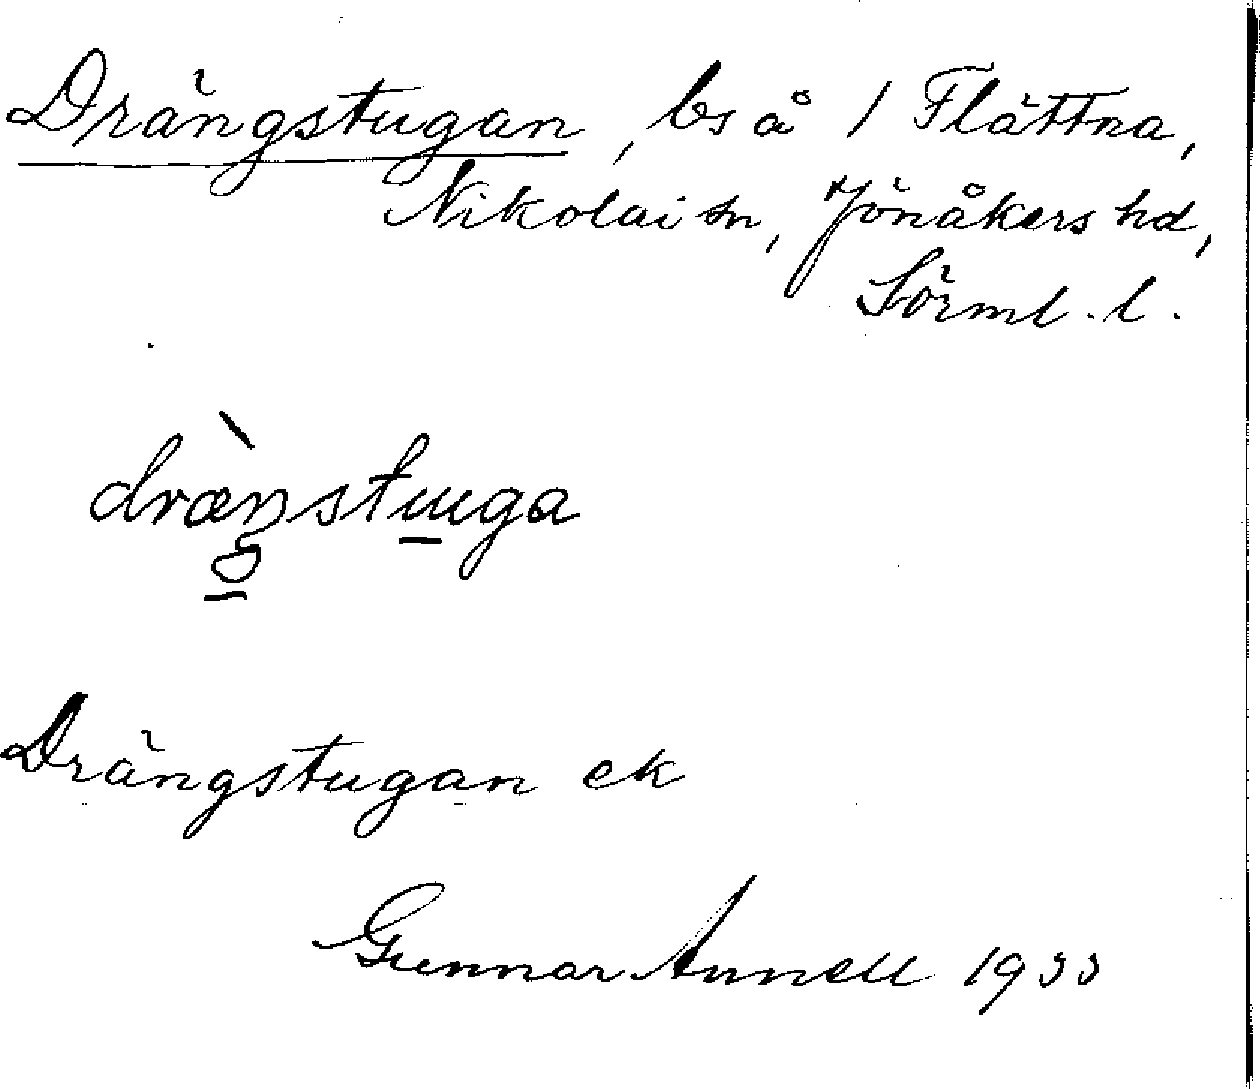 Drängstugan, bs å 1 Flättna,
Nikolai sn, Jönåkers hd,
Sörml. l.
dræŋstuga
Drängstugan ek
Gunnar Annell 1933